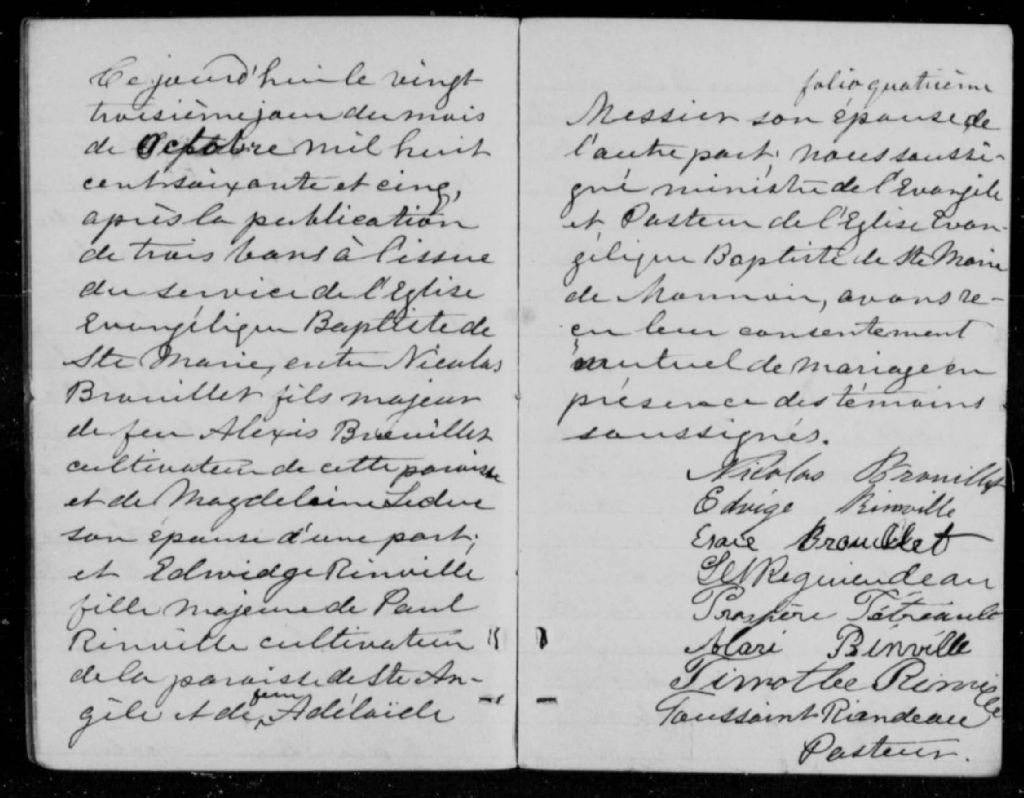 Ce jourd'hui le vingt
troisième jour du mois
de Octobre mil huit
cent soixante et cinq,
après la publication
de trois bans à l'issue
du service de l'Eglise
Evangélique Baptiste de
Ste Marie, entre Nicolas
Brouillet fils majeur
de feu Aléxis Brouillet
cultivateur de cette paroisse
et de Magdeleine Leduc
son épouse d'une part;
et Edwidge Rinville
fille majeure de Paul
Rinville cultivateur
de la paroisse de Ste An-
gèle et de feue Adélaïde
folio quatrième
Messier son épouse de
l'autre part; nous soussi-
gné ministre de l'Evangile
et Pasteur de l'Eglise Evan-
gélique Baptiste de Ste Marie
de Monnoir, avons re-
çu leur consentement
mutuel de mariage en
présence des témoins
soussignés.
Nicolas Brouillet
Edvige Rinville
Esaie Brouillet
Prospère Tétreault
Rinville
Timothee
Toussaint Riendeau
Pasteur.